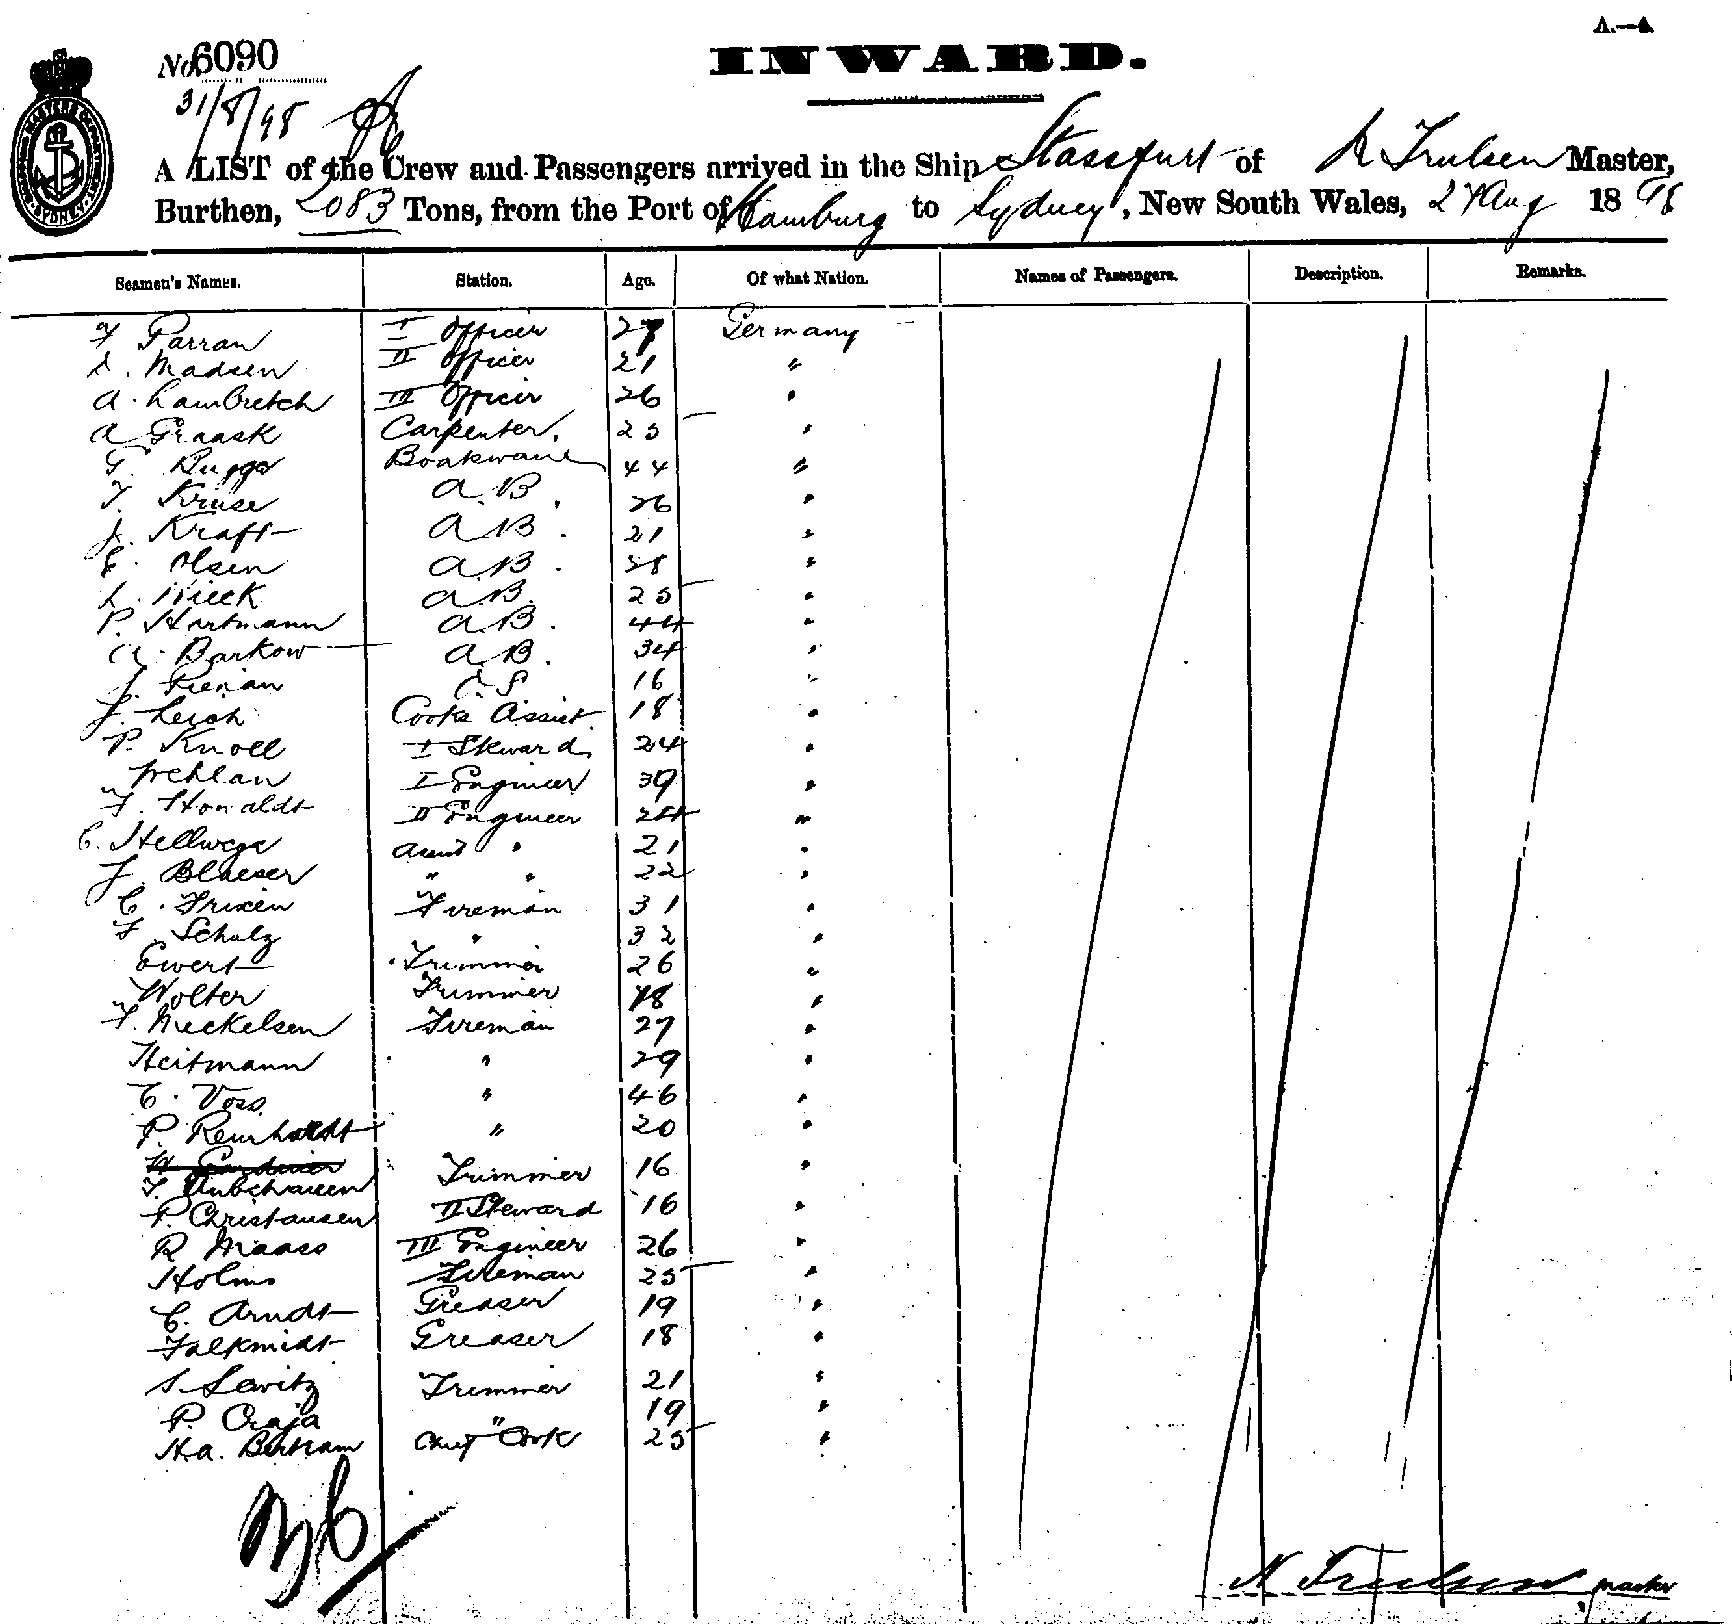 A.—A.
No. 6090
INWARD.
31/8/98
A LIST of the Crew and Passengers arrived in the Ship Stassfurt of N Trulsen Master,
Burthen, 2083 Tons, from the Port of Hamburg to Sydney, New South Wales, 27 Aug 1898
Seamen's Names. Station. Age. Of what Nation. Names of Passengers. Description. Remarks.
F Parran I Officer 27 Germany
Madsen II Officer 21 "
A. Lambretch III Officer 26 "
A Graask Carpenter. 25 "
G. Rugge 44 "
F. Kruse A.B. 26 "
J. Kraft A.B. 21 "
C. Olsen A.B. 28 "
Wieck A.B. 25 "
P. Hartmann A.B. 44 "
A. Barkow A.B. 34 "
J. 16 "
J. Leich Cooks Assist. 18 "
P. Knoll I Steward 24 "
I Engineer 39 "
F. Honaldt II Engineer 24 "
C. Hellwege Assist " 21 "
J. Blaeser " " 22 "
C. Frixen Fireman 31 "
F. Schulz " 32 "
Ewert Trimmer 26 "
Wolter Trimmer 18 "
F. Meckelsen Fireman 27 "
Heitmann " 29 "
C. Voss " 46 "
P. Reinholdt " 20 "
Trimmer 16 "
P. Christausen II Steward 16 "
R Maass III Engineer 26 "
Holms Fireman 25 "
C. Arndt Greaser 19 "
Falkmidt Greaser 18 "
S. Lewitz Trimmer 21 "
P. Czaja " 19 "
Ha. Bertram Chief Cook 25 "
36
N Trulsen, master